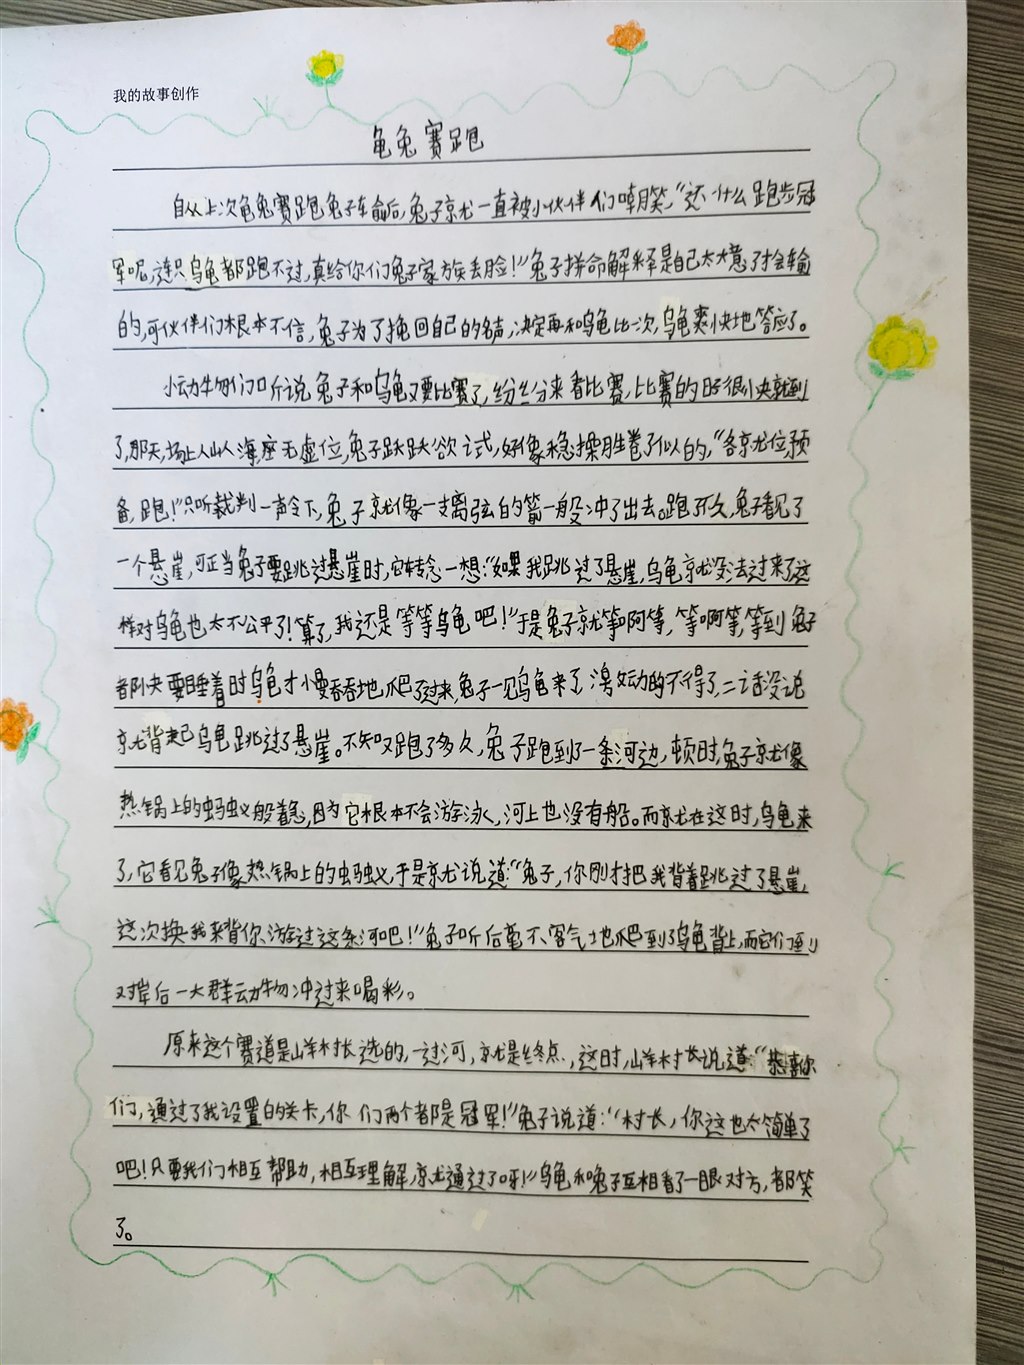 我的故事创作
龟兔赛跑
自从上次龟兔赛跑兔子输后,兔子就一直被小伙伴们嘲笑,“还什么跑步冠
军呢,连只乌龟都跑不过,真给你们兔子家族丢脸!”兔子拼命解释是自己太大意了才会输
的,可伙伴们根本不信,兔子为了挽回自己的名声,决定再和乌龟比一次,乌龟爽快地答应了。
小动物们听说兔子和乌龟又要比赛了,纷纷来看比赛,比赛的日子很快就到
了,那天,场上人山人海,座无虚位,兔子跃跃欲试,好像稳操胜卷了似的,“各就位,预
备,跑!”只听裁判一声令下,兔子就像一支离弦的箭一般冲了出去。跑不久,兔子看见了
一个悬崖,可正当兔子要跳过悬崖时,它转念一想:“如果我跳过了悬崖,乌龟就没法过来了这
样对乌龟也太不公平了!算了,我还是等等乌龟吧!”于是兔子就等啊等,等啊等,等到兔子
都快要睡着时乌龟才慢吞吞地爬了过来,兔子一见乌龟来了,激动的不得了,二话没说
就背起乌龟跳过了悬崖。不知又跑了多久,兔子跑到了一条河边,顿时,兔子就像
热锅上的蚂蚁般着急,因为它根本不会游泳,河上也没有船。而就在这时,乌龟来
了,它看见兔子像热锅上的蚂蚁,于是就说道:“兔子,你刚才把我背着跳过了悬崖,
这次换我来背你游过这条河吧!”兔子听后毫不客气地爬到了乌龟背上,而它们到
对岸后一大群动物冲过来喝彩。
原来这个赛道是山羊村长选的,一过河,就是终点,这时,山羊村长说道:“恭喜你
们,通过了我设置的关卡,你们两个都是冠军!”兔子说道:“村长,你这也太简单了
吧!只要我们相互帮助,相互理解,就通过了呀!”乌龟和兔子互相看了一眼对方,都笑
了。